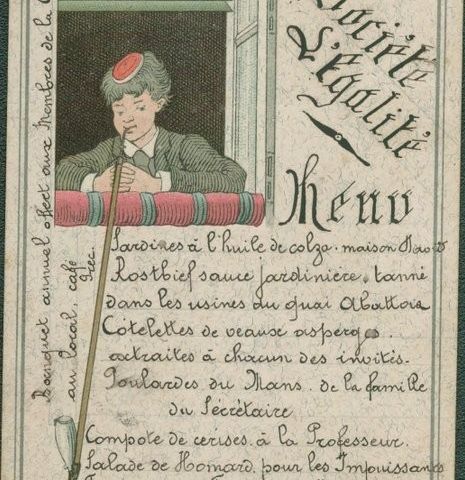 Société
L'Egalité
Menu
Banquet annuel offert aux Membres de la
au local, café
Grec.
Sardines à l'huile de colza. maison
Rostbief sauce jardinière, tanné
dans les usines du quai Abattoir
Côtelettes de veaux asperges.
extraites à chacun des invités.
Poulardes du Mans. de la famille
du Sécrétaire
Compote de cerises. à la Professeur.
Salade de Homard. pour les Impuissants